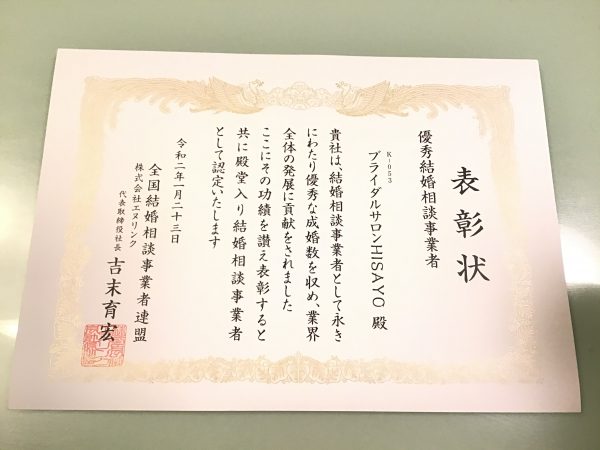 表彰状
優秀結婚相談事業者
K-053
ブライダルサロンHISAYO 殿
貴社は、結婚相談事業者として永き
にわたり優秀な成婚数を収め、業界
全体の発展に貢献をされました
ここにその功績を讃え表彰すると
共に殿堂入り結婚相談事業者
として認定いたします
令和二年一月二十三日
全国結婚相談事業者連盟
株式会社エヌリンク
代表取締役社長 吉末育宏